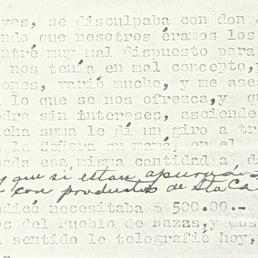 yes, se disculpaba con don
ndo que nosotros éramos los
ntré muy mal dispuesto para
nos tenía en mal concepto,
ones, varió mucho, y me ase
a lo que se nos ofrezca, y
dre sin intereses, asciende
cha suma le dí un giro a tr
la Señora su mamá, en el
ada esa misma cantidad a d
y que si estan apurados
con productos de Sta Ca
dicé necesitaba $ 500.00.--
es del Pueblo de Nazas, y
sentido le telegrafié hoy,